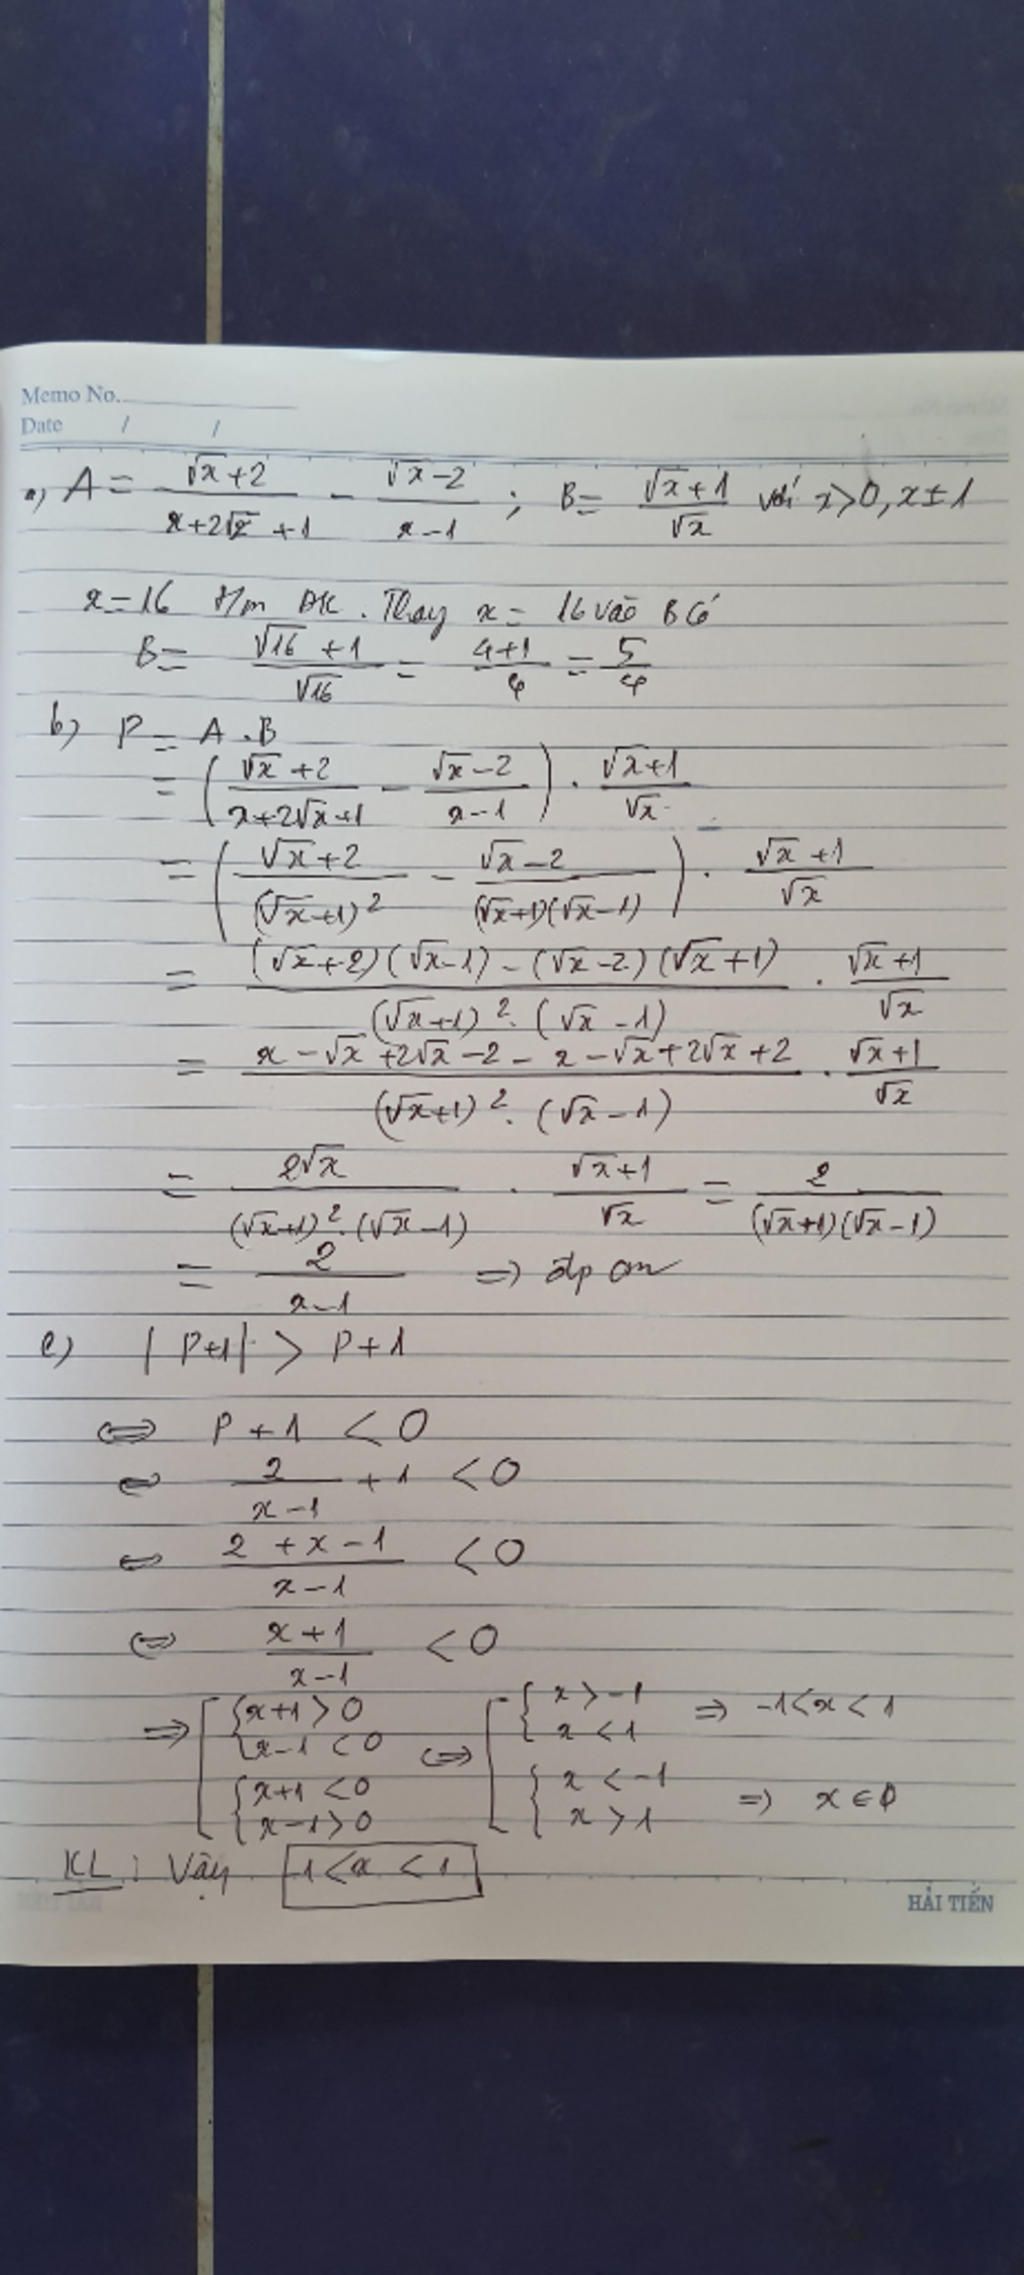 Memo No.
Date / /
a) A = (√x+2)/(x+2√x+1) - (√x-2)/(x-1) ; B = (√x+1)/√x với x>0, x±1
x=16 t/m ĐK. Thay x = 16 vào B có
B = (√16+1)/√16 = (4+1)/4 = 5/4
b) P = A.B
= ((√x+2)/(x+2√x+1) - (√x-2)/(x-1)) . (√x+1)/√x
= ((√x+2)/(√x+1)² - (√x-2)/((√x+1)(√x-1))) . (√x+1)/√x
= ((√x+2)(√x-1)-(√x-2)(√x+1))/((√x+1)².(√x-1)) . (√x+1)/√x
= (x-√x+2√x-2-x-√x+2√x+2)/((√x+1)².(√x-1)) . (√x+1)/√x
= 2√x/((√x+1)².(√x-1)) . (√x+1)/√x = 2/((√x+1)(√x-1))
= 2/(x-1) ⇒ đpcm
c) |P+1| > P+1
⇔ P+1 < 0
⇔ 2/(x-1) + 1 < 0
⇔ (2+x-1)/(x-1) < 0
⇔ (x+1)/(x-1) < 0
⇒ [ { x+1>0 ⇔ [ { x>-1 ⇒ -1<x<1
x-1<0 x<1
{ x+1<0 { x<-1 ⇒ x∈∅
x-1>0 x>1
KL: Vậy -1<x<1
HẢI TIẾN